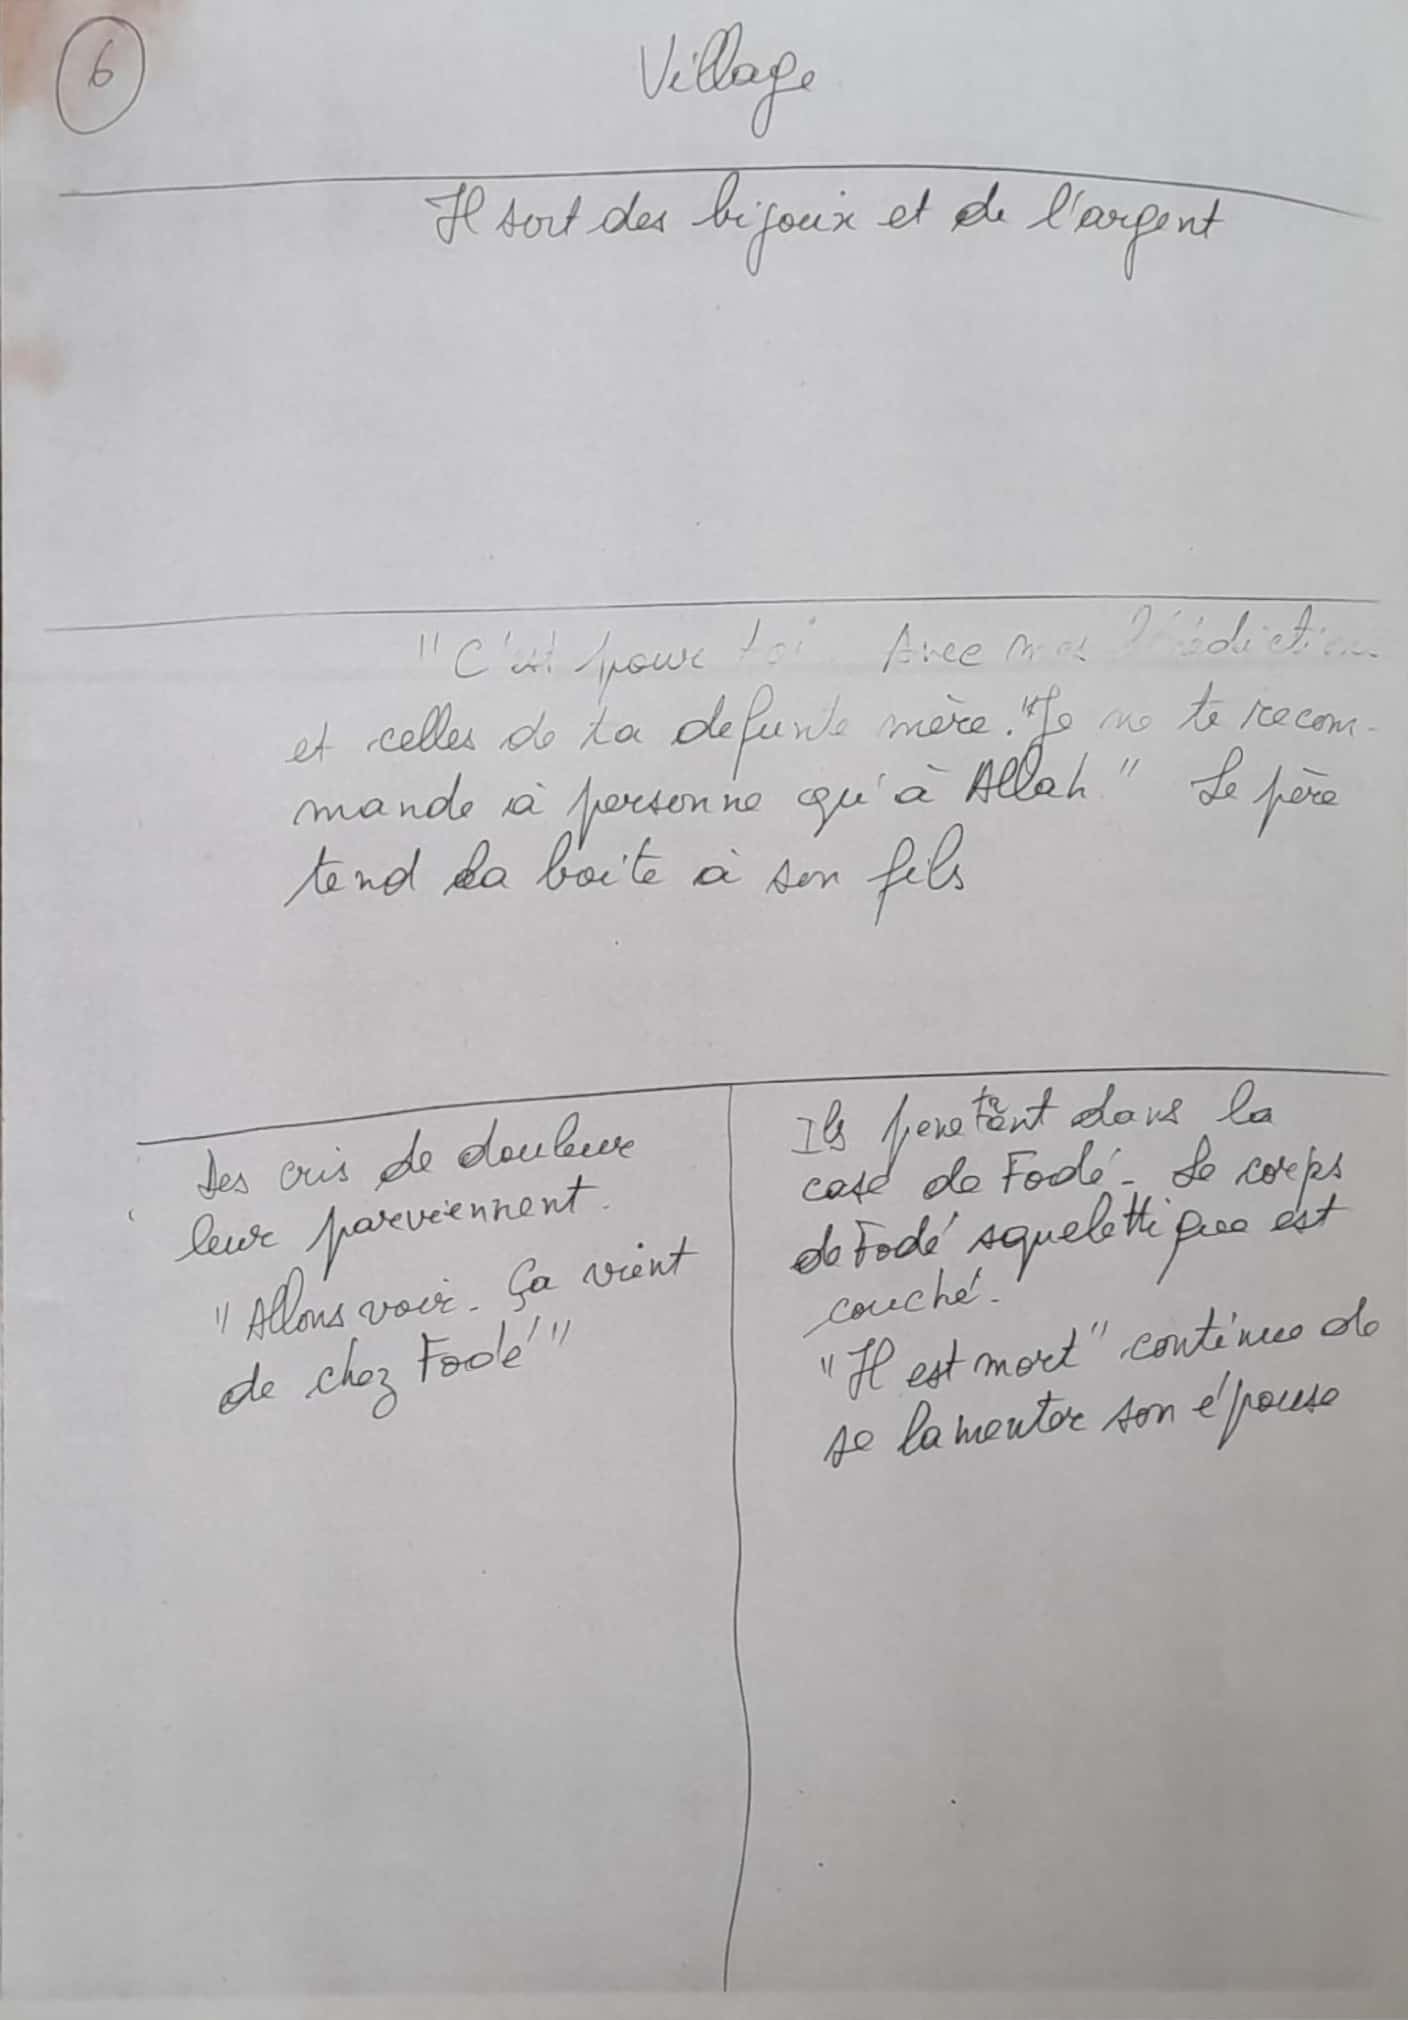 6
Village
Il sort des bijoux et de l'argent
"C'est pour toi. Avec mes bénédictions
et celles de ta defunte mère. "Je ne te recom-
mande à personne qu'à Allah" Le père
tend la boite à son fils
Des cris de douleur
leur parviennent.
"Allons voir. Ça vient
de chez Fodé"
Ils penetrent dans la
case de Fodé. Le corps
de Fodé squelettique est
couché.
"Il est mort" continue de
se lamenter son épouse